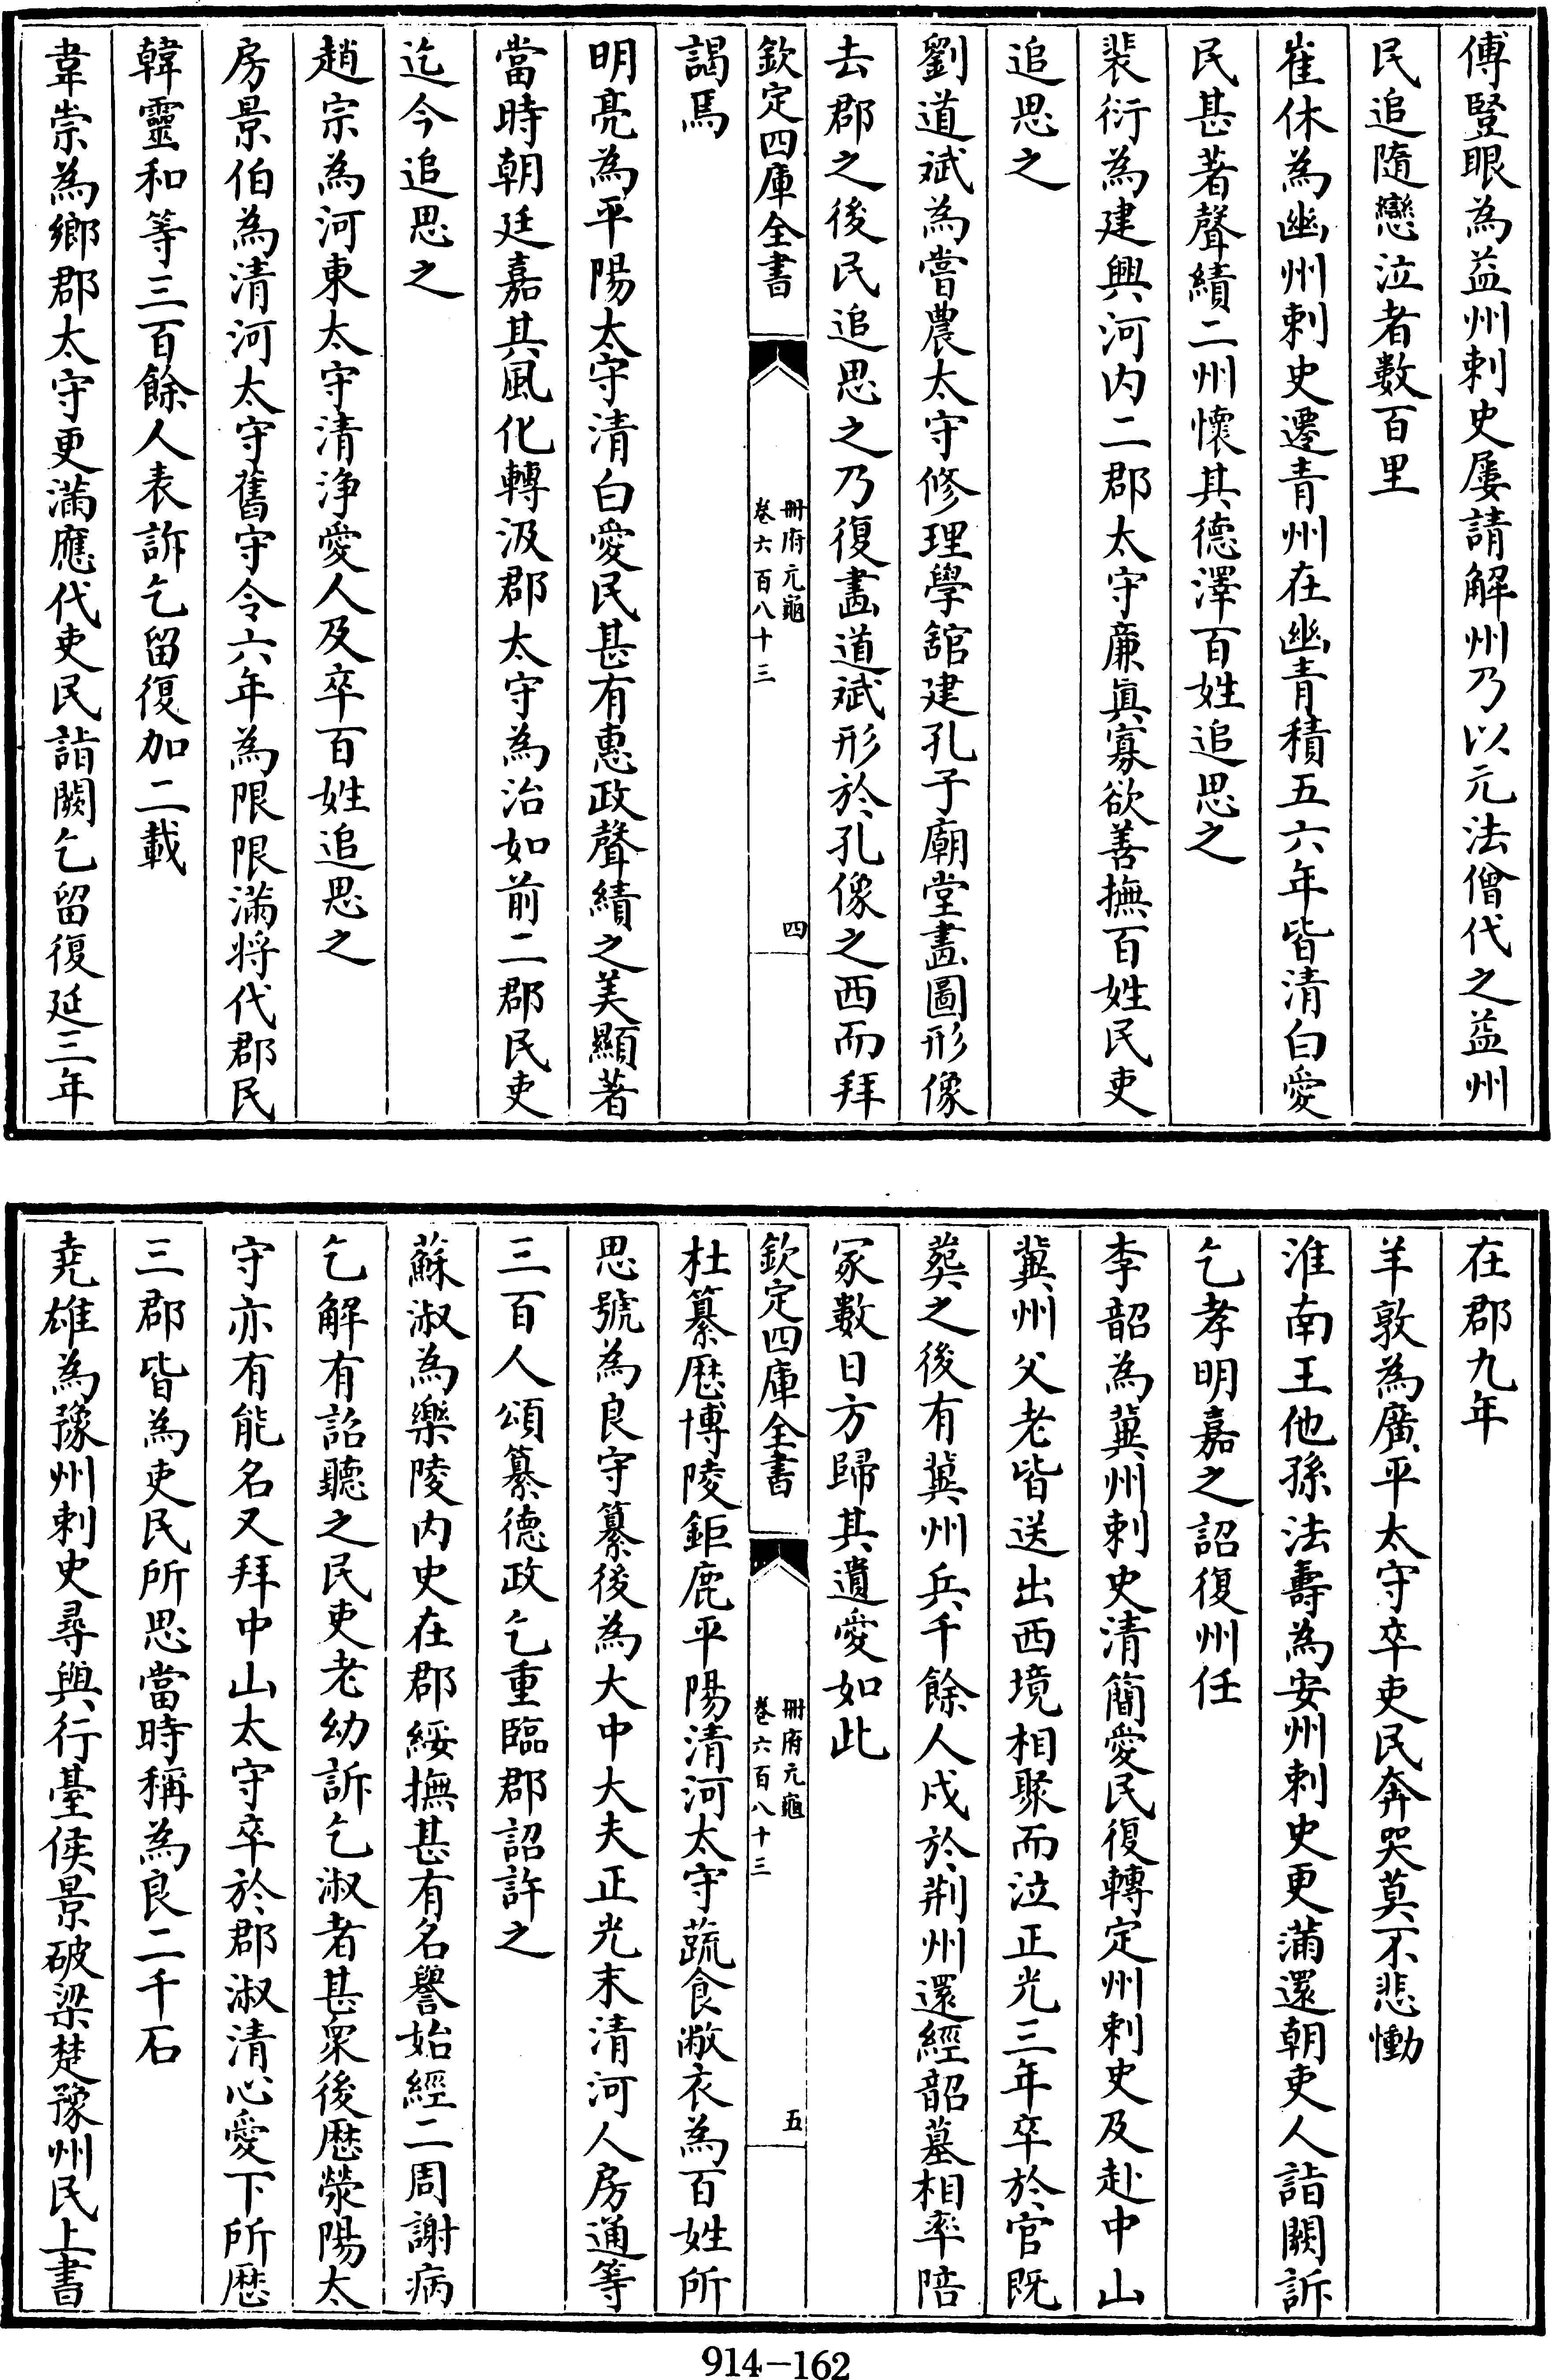 傅豎眼為益州刺史屢請解州乃以元法僧代之益州
民追隨戀泣者數百里
崔休為幽州刺史遷青州在幽青積五六年皆清白愛
民甚著聲績二州懷其德澤百姓追思之
裴衍為建興河内二郡太守廉真寡欲善撫百姓民吏
追思之
劉道斌為嘗農太守修理學舘建孔子廟堂畫圖形像
去郡之後民追思之乃復畫道斌形於孔像之西而拜
欽定四庫全書
冊府元龜
卷六百八十三
四
謁焉
明亮為平陽太守清白愛民甚有惠政聲績之美顯著
當時朝廷嘉其風化轉汲郡太守為治如前二郡民吏
迄今追思之
趙宗為河東太守清浄愛人及卒百姓追思之
房景伯為清河太守舊守令六年為限限滿将代郡民
韓靈和等三百餘人表訴乞留復加二載
韋崇為鄉郡太守更滿應代吏民詣闕乞留復延三年
在郡九年
羊敦為廣平太守卒吏民奔哭莫不悲慟
淮南王他孫法壽為安州刺史更滿還朝吏人詣闕訴
乞孝明嘉之詔復州任
李韶為冀州刺史清簡愛民復轉定州刺史及赴中山
冀州父老皆送出西境相聚而泣正光三年卒於官既
葬之後有冀州兵千餘人戍於荆州還經韶墓相率陪
冢數日方歸其遺愛如此
欽定四庫全書
冊府元龜
卷六百八十三
五
杜纂歴博陵鉅鹿平陽清河太守蔬食敝衣為百姓所
思號為良守纂後為大中大夫正光末清河人房通等
三百人頌纂德政乞重臨郡詔許之
蘇淑為樂陵内史在郡綏撫甚有名譽始經二周謝病
乞解有詔聽之民吏老幼訴乞淑者甚衆後歴滎陽太
守亦有能名又拜中山太守卒於郡淑清心愛下所歴
三郡皆為吏民所思當時稱為良二千石
堯雄為豫州刺史尋與行臺侯景破梁楚豫州民上書
914-162